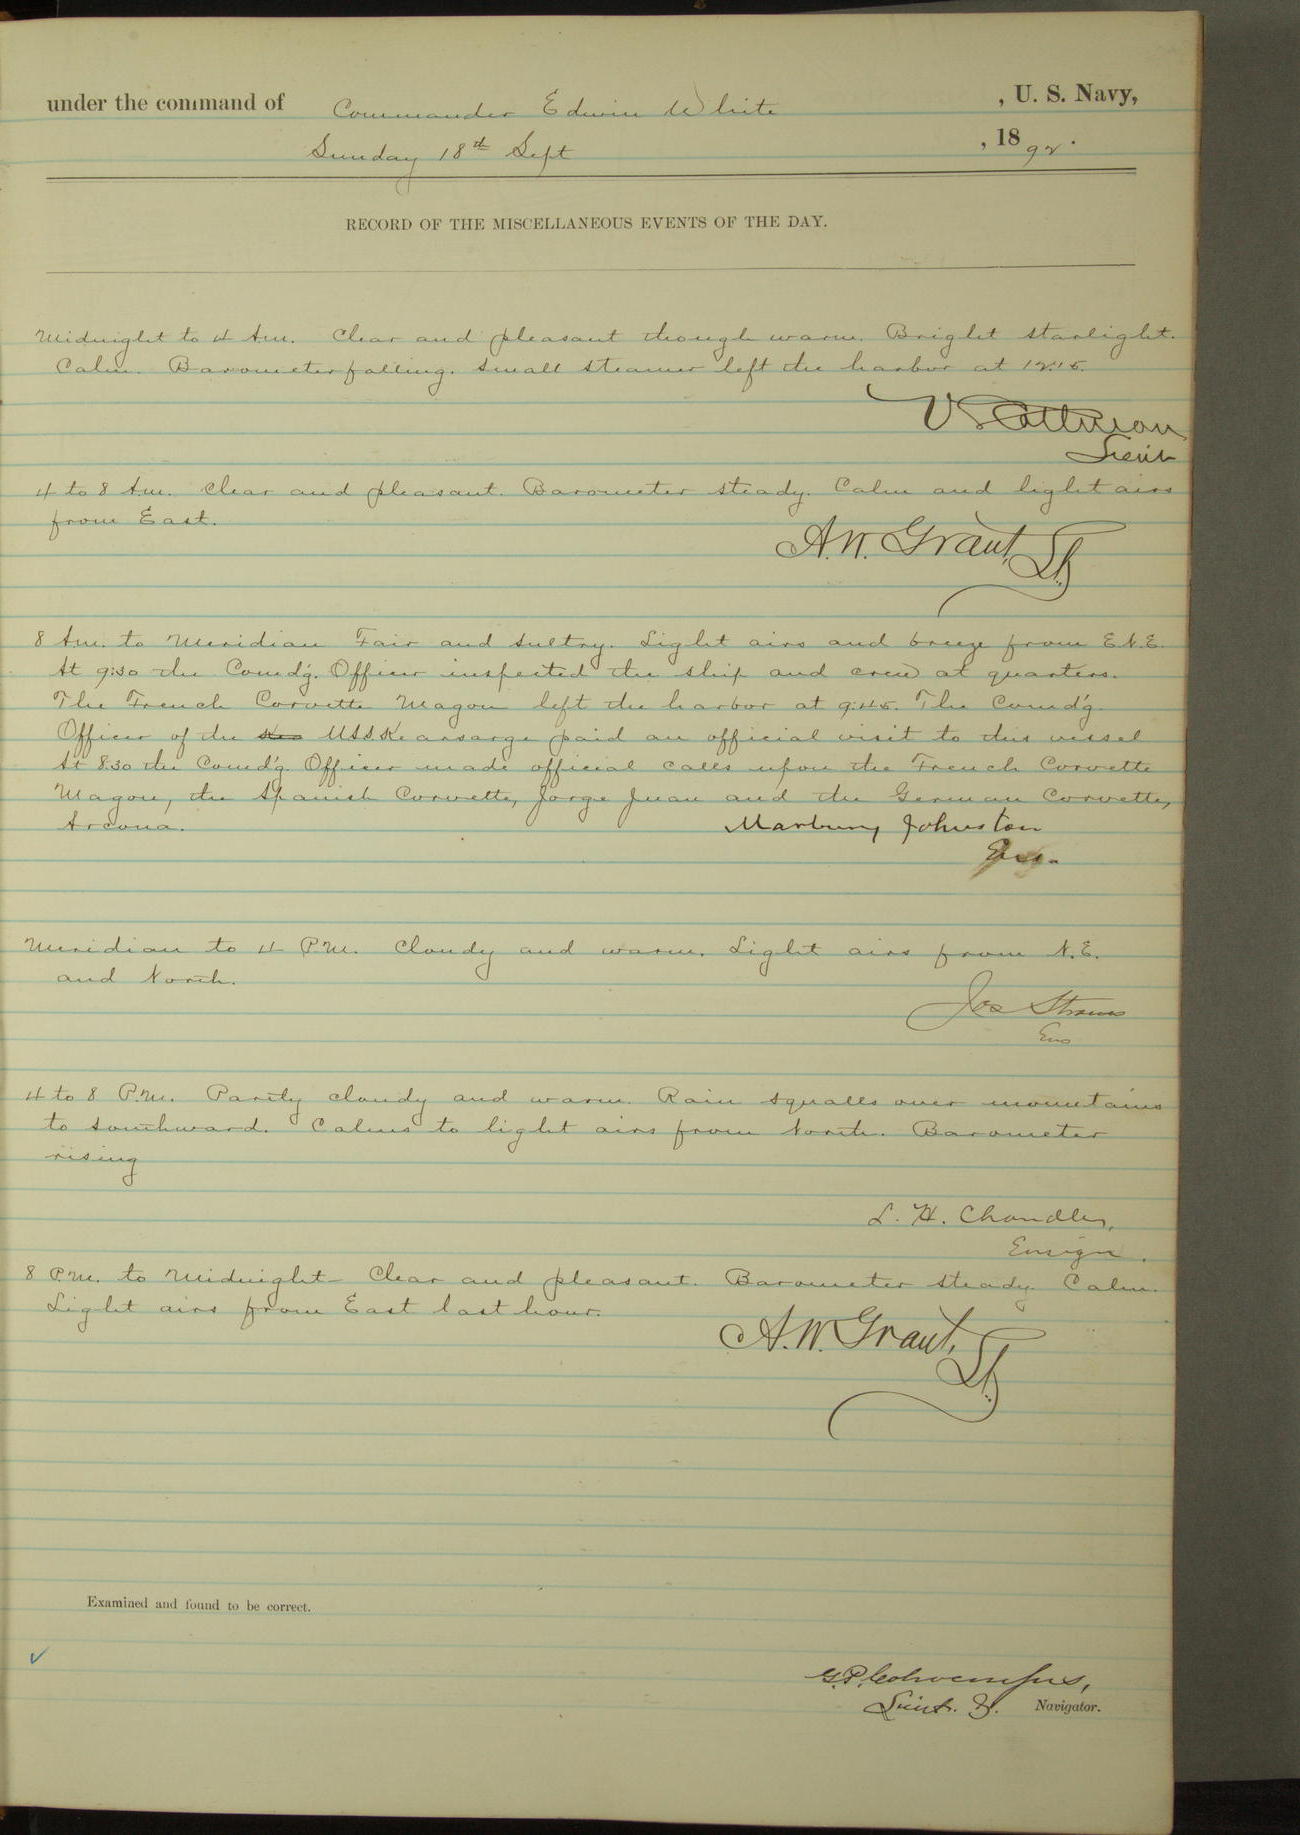 under the command of Commander Edwin White, U. S. Navy,
Sunday 18th Sept, 1892.
RECORD OF THE MISCELLANEOUS EVENTS OF THE DAY.
Midnight to 4 Am. Clear and pleasant though warm. Bright starlight.
Calm. Barometer falling. Small steamer left the harbor at 12:15.
Lieut
4 to 8 Am. Clear and pleasant. Barometer steady. Calm and light airs
from East.
A.W. Grant, Lt.
8 Am. to Meridian Fair and sultry. Light airs and breeze from E.N.E.
At 9:30 the Comd'g. Officer inspected the ship and crew at quarters.
The French Corvette Magon left the harbor at 9:45. The Comd'g.
Officer of the USS Kearsarge paid an official visit to this vessel
At 8:30 the Comd'g Officer made official calls upon the French Corvette
Magon, the Spanish Corvette, Jorge Juan and the German Corvette,
Arcona.
Marbury Johnston
Ens.
Meridian to 4 P.M. Cloudy and warm. Light airs from N.E.
and North.
Jos Strauss
Ens
4 to 8 P.M. Partly cloudy and warm. Rain squalls over mountains
to southward. Calms to light airs from North. Barometer
rising
L. H. Chandler,
Ensign.
8 P.M. to Midnight - Clear and pleasant. Barometer steady. Calm.
Light airs from East last hour.
A.W. Grant, Lt.
Examined and found to be correct.
✓
G.P. Colvocoresses,
Lieut. & Navigator.